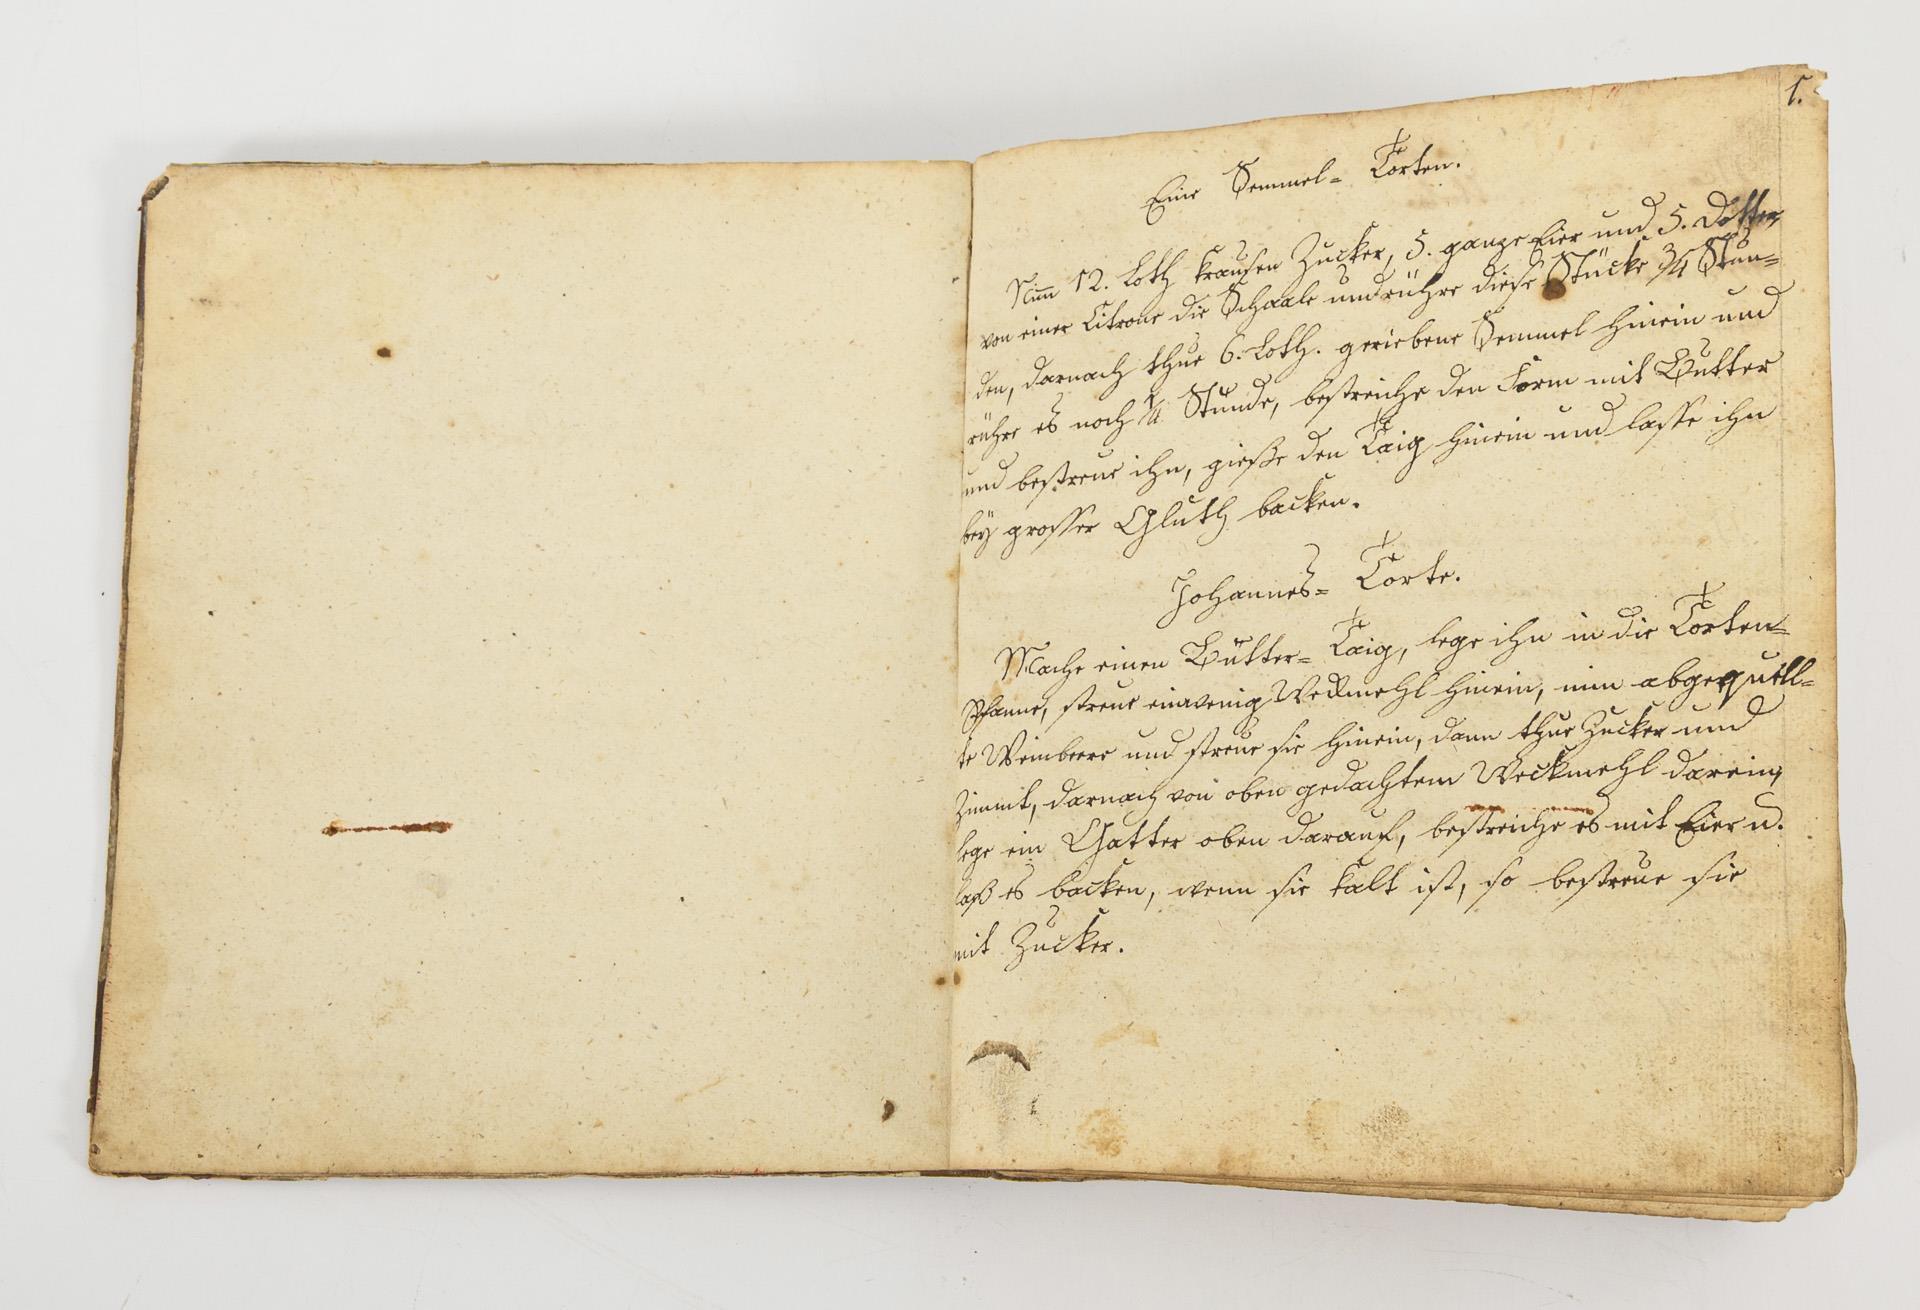 1.
Eine Semmel= Torten.
Nim 12. Loth krausen Zucker, 5. ganze Eier und 5. Dotter,
von einer Citrone die Schaale und rühre diese Stücke ¾ Stun=
den, darnach thue 6. Loth. geriebene Semmel hinein und
rühre es noch ¼ Stunde, bestreiche den Form mit Butter
und bestreue ihn, gieße den Taig hinein und lasse ihn
bey grosser Gluth backen.
Johannes= Torte.
Mache einen Butter= Taig, lege ihn in die Torten=
Pfanne, streue ein wenig Weckmehl hinein, nim abgequell=
te Weinbeere und streue sie hinein, dann thue Zucker und
Zimmt, darnach von oben gedachtem Weckmehl darein,
lege ein Gatter oben darauf, bestreiche es mit Eier u.
laß es backen, wenn sie kalt ist, so bestreue sie
mit Zucker.